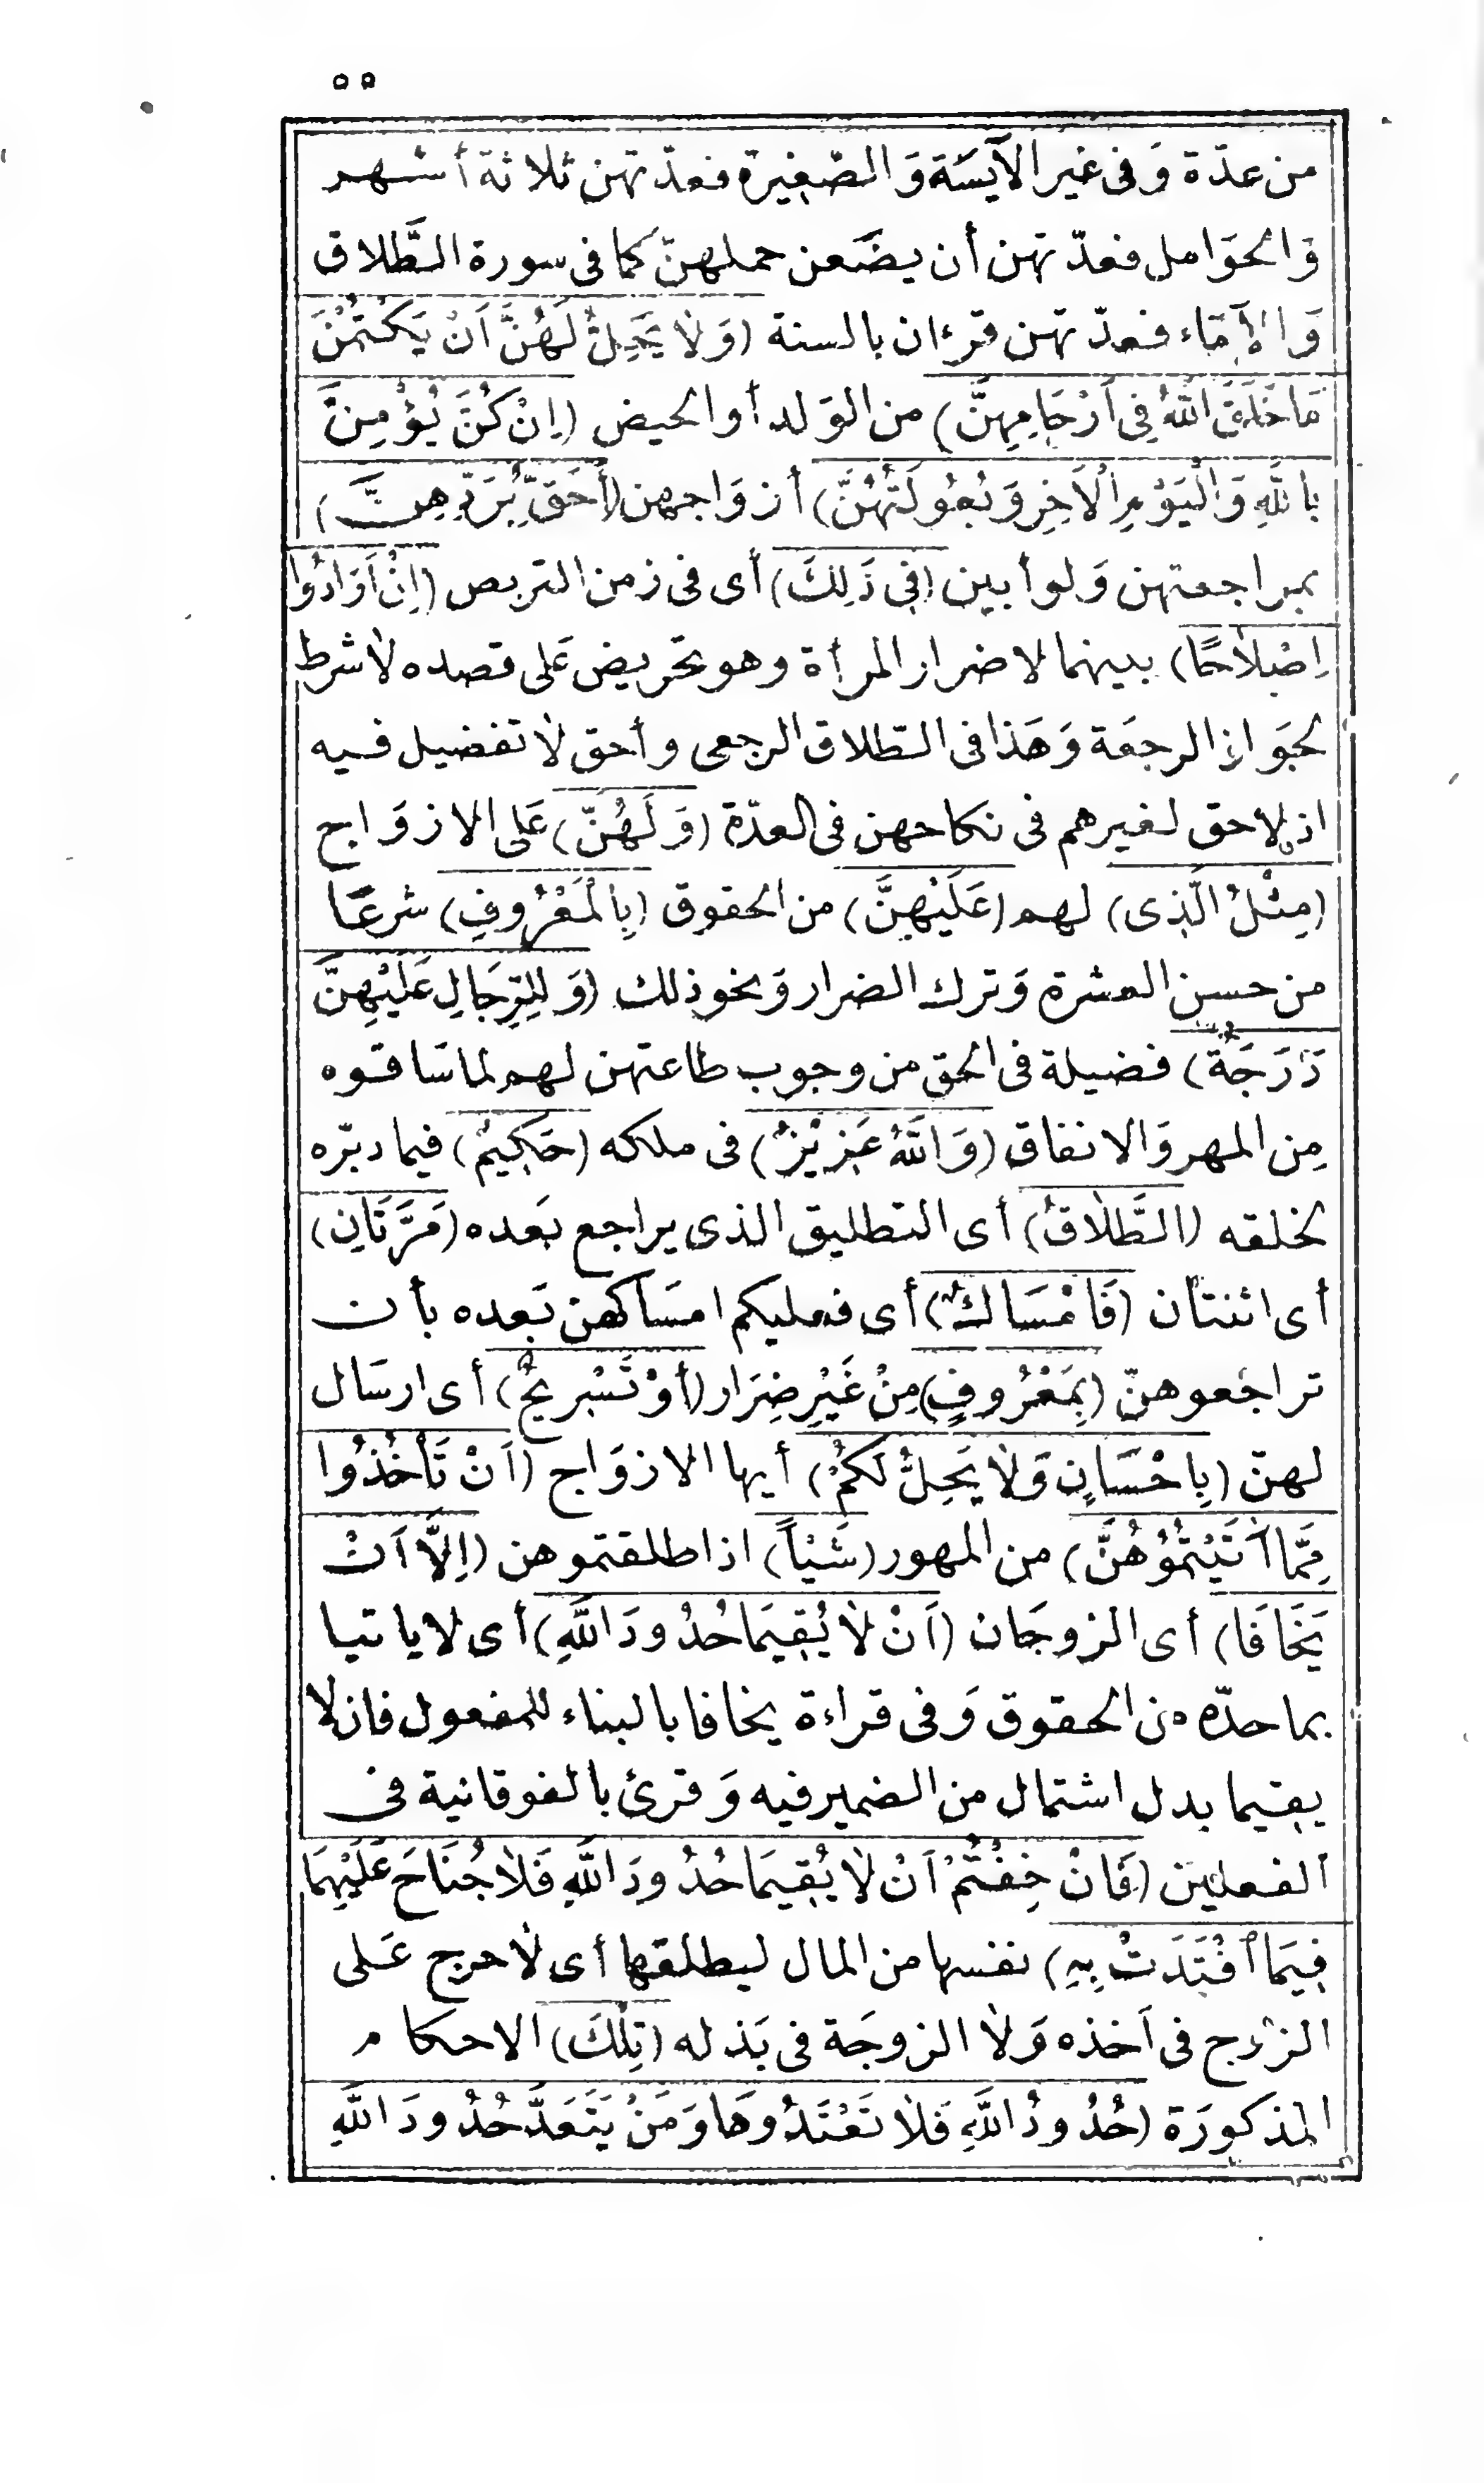 ٥٥
من عدّة وَفى غير الآيسَة وَالصّغيرة فعدّتهن ثلاثة أشهر
وَالحوَامل فعدّتهن أن يضَعن حملهنّ كما فى سورة الطَّلاق
وَالإمَاء فعدّتهن قرءان بالسنة (وَلاٰ يَحِلُّ لَهُنَّ اَنْ يَكْتُمْنَ
مَا خَلَقَ اللّٰهُ فِى اَرْحَامِهِنَّ) من الوَلد أو الحيض (اِنْ كُنَّ يُؤْمِنَّ
بِاللَّهِ وَالْيَوْمِ الْاَخِرِ وَبُعُولَتُهُنَّ) أزوَاجهن (أَحَقُّ بِرَدِّهِنَّ)
بمراجعتهن وَلو أبين (فِى ذَلِكَ) أى فى زمن التربص (اِنْ اَرَادُوا
اِصْلاٰحًا) بينهما لا ضرار المرأة وهو تحريض عَلى قصده لاٰ شرط
لجوَاز الرجعَة وَهَذا فى الطّلاق الرجعى وأحق لاٰ تفضيل فيه
اذ لاٰحق لغيرهم فى نكاحهن فى العدّة (وَلَهُنّ) عَلى الازوَاج
(مِثْلُ الَّذِى) لهم (عَلَيْهِنَّ) من الحقوق (بِالْمَعْرُوفِ) شرعًا
من حسن العشرة وَترك الضرار وَنحو ذلك (وَلِلرِّجَالِ عَلَيْهِنَّ
دَرَجَةٌ) فضيلة فى الحق من وجوب طاعتهن لهم لما سَاقوه
مِن المهر وَالانفاق (وَاللّٰهُ عَزِيْزٌ) فى ملكه (حَكِيمٌ) فيما دبّره
لخلقه (الطَّلاٰقُ) أى التطليق الذى يراجع بَعده (مَرَّتَانِ)
أى اثنتان (فَاِمْسَاكٌ) أى فعليكم امسَاكهن بَعده بأن
تراجَعوهنّ (بِمَعْرُوفٍ) مِنْ غَيْرِ ضِرَار (أوْ تَسْرِيحٌ) أى ارسَال
لهنّ (بِاِحْسَانٍ وَلاٰ يَحِلُّ لَكُمْ) أيها الازوَاج (اَنْ تَأْخُذُوا
مِمَّا أٰتَيْتُمُوْهُنَّ) من المهور (شَيْأً) اذا طلقتموهن (اِلَّا اَنْ
يَخَافَا) أى الزوجَان (اَنْ لاٰ يُقِيمَا حُدُودَ اللَّهِ) أى لا ياتيا
بما حدّه من الحقوق وَفى قراءة يخافا بالبناء للمفعول فان لا
يقيما بدل اشتمال من الضمير فيه وَقرئ بالفوقانية فى
الفعلين (فَاِنْ خِفْتُمْ اَنْ لاٰ يُقِيمَا حُدُودَ اللَّهِ فَلاٰ جُنَاحَ عَلَيْهِمَا
فِيمَا ٱفْتَدَتْ بِهِ) نفسها من المال ليطلقها أى لاٰ حرج عَلى
الزوج فى اَخذه وَلاٰ الزوجَة فى بَذله (تِلْكَ) الاحكام
المذكورَة (حُدُودُ اللَّهِ فَلاٰ تَعْتَدُوهَا وَمَنْ يَتَعَدَّ حُدُودَ اللَّهِ